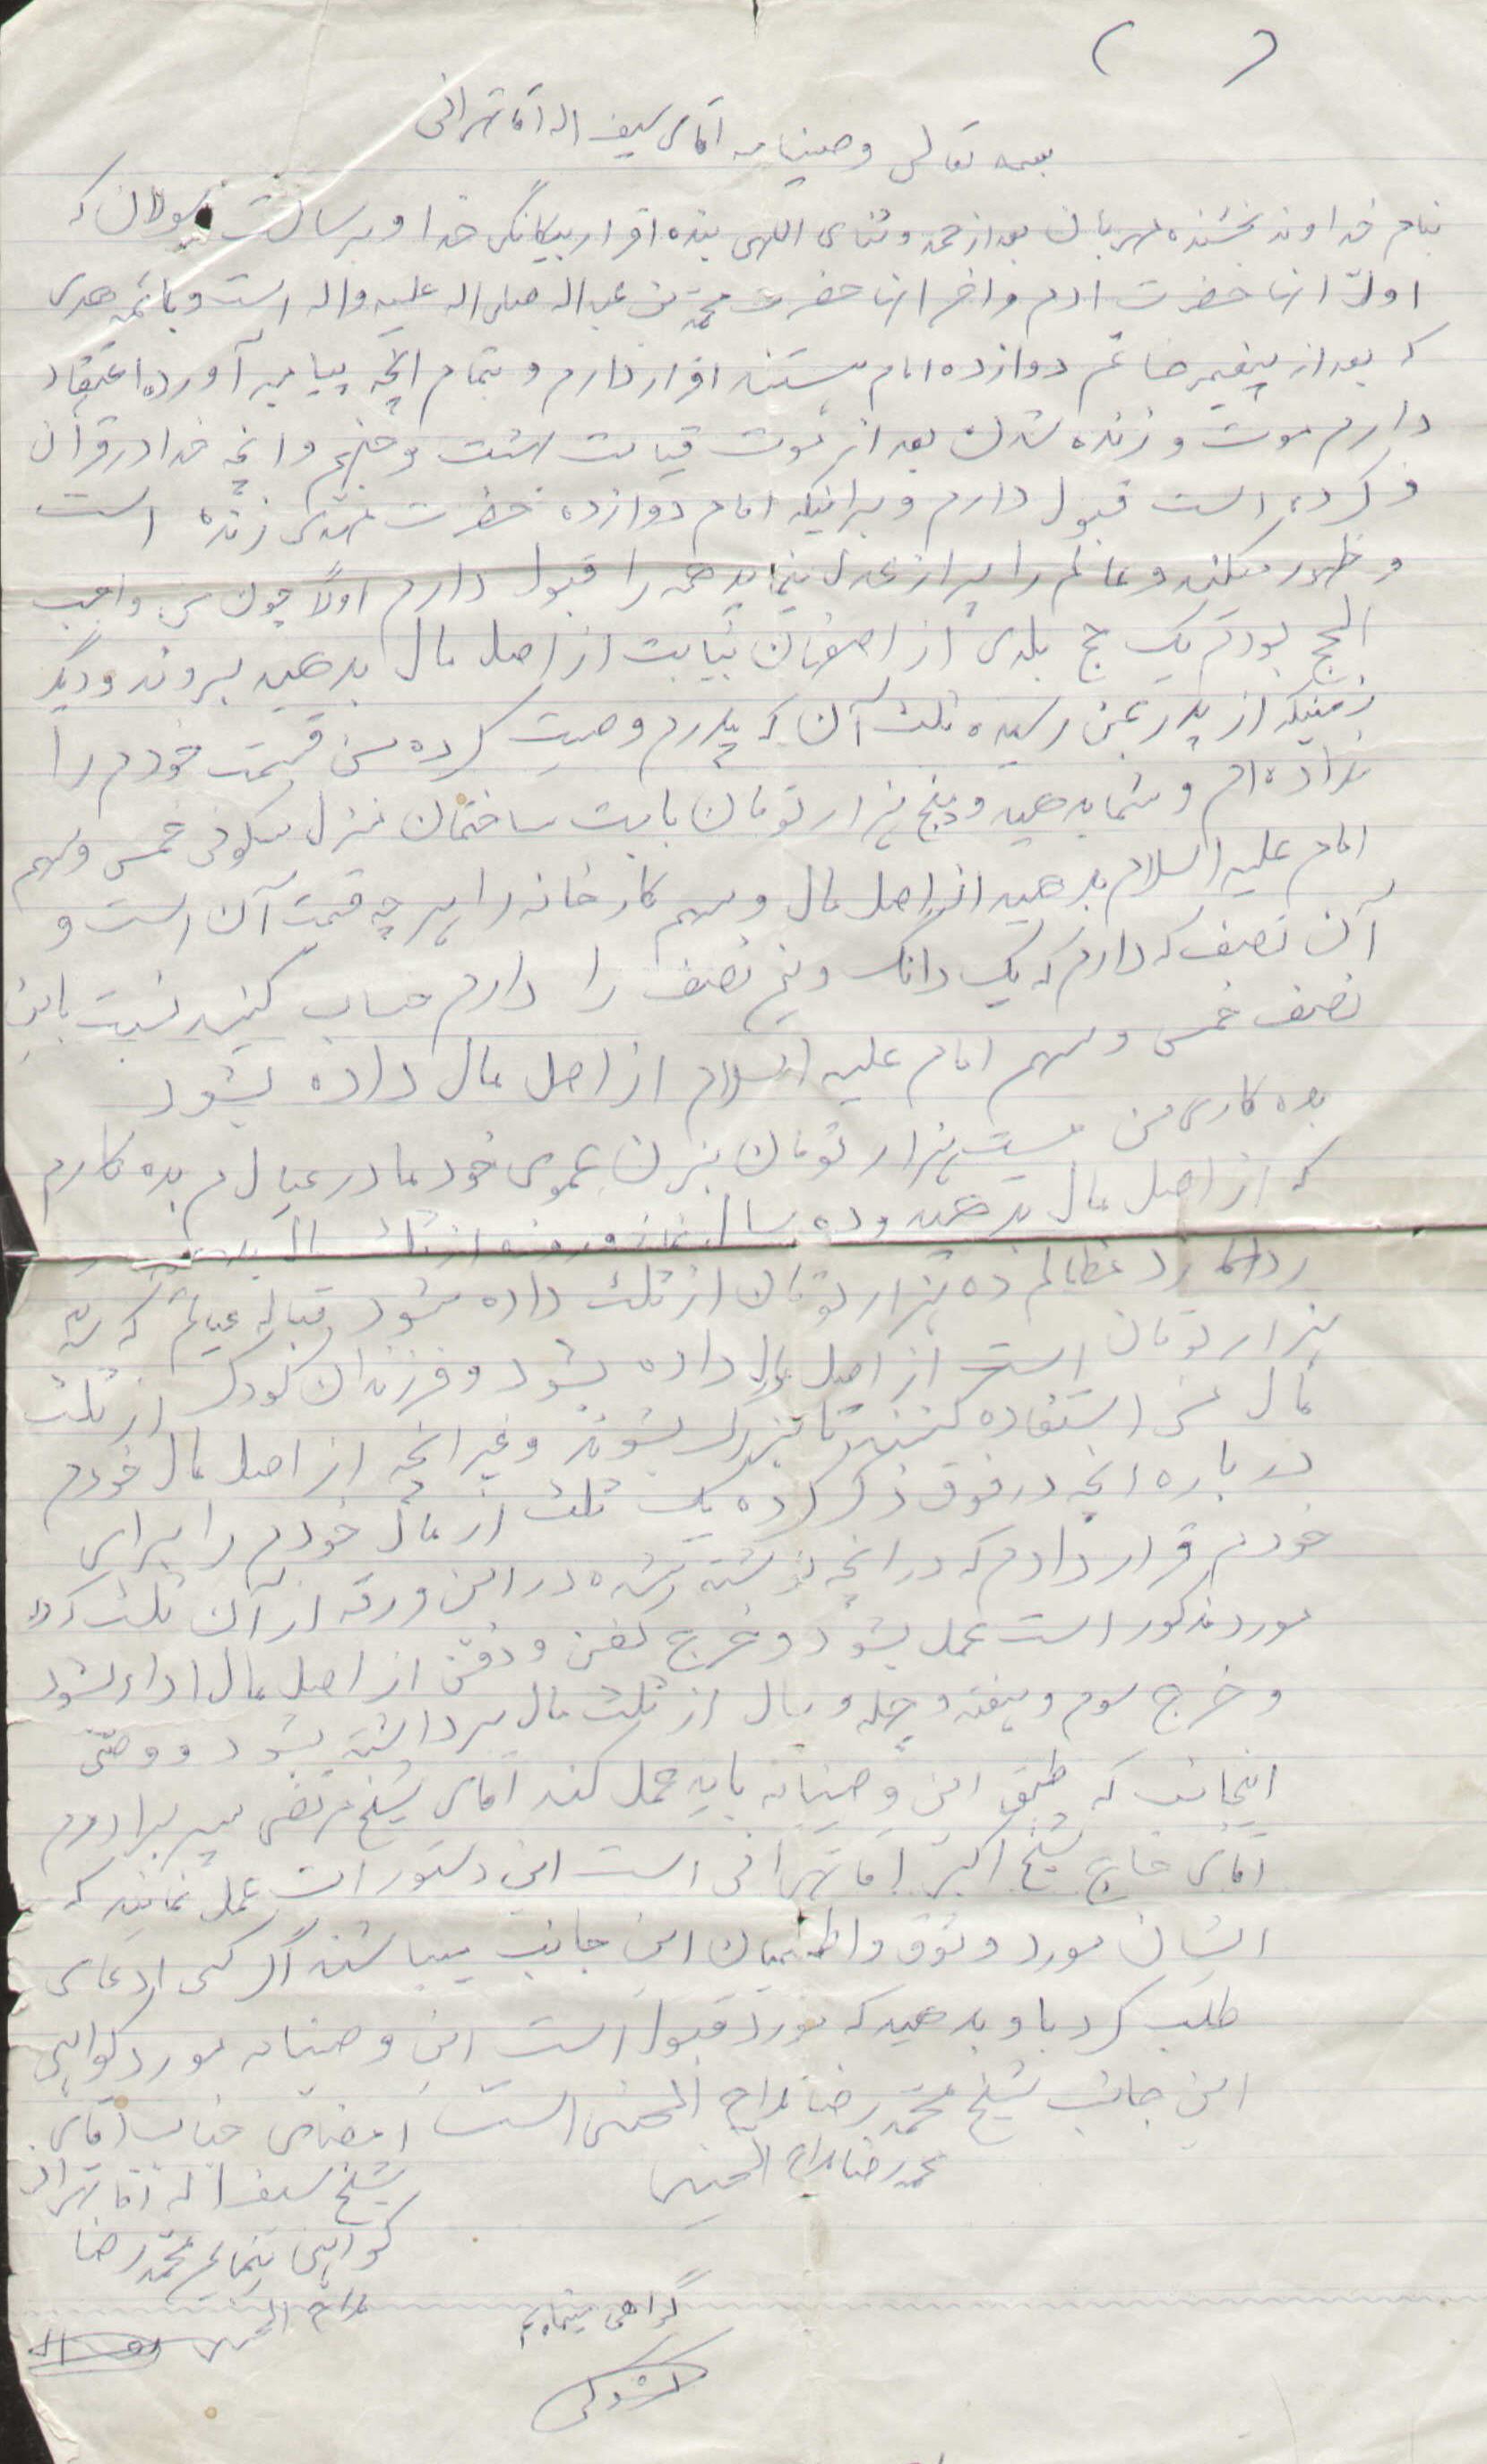 ( )
بسمه تعالی وصیتنامه آقای سیف اله آقاتهرانی
بنام خداوند بخشنده مهربان بعد از حمد و ثنای اللهی بنده اقرار بیگانگی خدا و برسالت رسولان که
اول آنها حضرت ادم و اخر انها حضرت محمد بن عبداله صلی اله علیه واله است و بائمه هدی
که بعد از پیغمبر خاتم دوازده امام هستند اقرار دارم و بتمام انچه پیامبر آورده اعتقاد
دارم موت و زنده شدن بعد از موت قیامت بهشت و جهنم و انچه خدا در قرآن
ذکر کرده است قبول دارم و براینکه امام دوازده حضرت مهدی زنده است
و ظهور میکند و عالم را پر از عدل مینماید همه را قبول دارم اولاً چون من واجب
الحج بودم یک حج بلدی از اصفهان نیابت از اصل مال بدهید بروند و دیگر
زمینیکه از پدر بمن رسیده ثلث آن که پدرم وصیت کرده من قیمت خودم را
نداده ام و شما بدهید و پنج هزار تومان بابت ساختمان منزل مسکونی خمس و سهم
امام علیه السلام بدهید از اصل مال و سهم کارخانه را هرچه قیمت آن است و
آن نصف که دارم که یک دانگ و نیم نصف را دارم حساب کنید نسبت باین
نصف خمس و سهم امام علیه السلام از اصل مال داده بشود
بده کاری من بیست هزار تومان بزن عموی خود مادر عیالم بده کارم
که از اصل مال بدهید و ده سال نماز و روزه از ثلث
رد مظالم ده هزار تومان از ثلث داده شود قباله عیالم که سه
هزار تومان است از اصل مال داده بشود و فرزندان کودک از ثلث
مال من استفاده کنند تا بزرگ بشوند و غیر انچه از اصل مال خودم
در باره انچه در فوق ذکر کرده یک ثلث از مال خودم را برای
خودم قرار دادم که در انچه نوشته شده در این ورقه از آن ثلث که
مورد مذکور است عمل بشود و خرج کفن و دفن از اصل مال اداء بشود
و خرج سوم و هفته و چله و سال از ثلث مال برداشته بشود و وصی
اینجانب که طبق این وصیتنامه باید عمل کند آقای شیخ مرتضی پسر برادرم
آقای حاج شیخ اکبر آقاتهرانی است این دستورات عمل نمایند که
ایشان مورد وثوق و اطمینان این جانب میباشند اگر کسی ادعای
طلب کرد باو بدهید که مورد قبول است این وصیتنامه مورد گواهی
این جانب شیخ محمد رضا مداح الحسینی است امضای جناب آقای
محمد رضا مداح الحسینی
شیخ سیف اله آقاتهرانی
گواهی مینمایم محمد رضا
مداح الحسینی
گواهی مینمایم